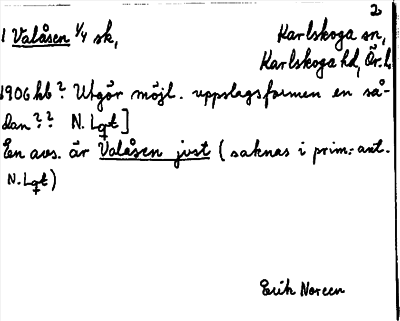 2
1 Valåsen 1/4 sk, Karlskoga sn,
Karlskoga hd, Ör. l.
1906 hb? Utgör möjl. uppslagsformen en så-
dan?? N. Lgt]
En avs. är Valåsen just (saknas i prim.-ant.
N. Lgt)
Erik Noreen